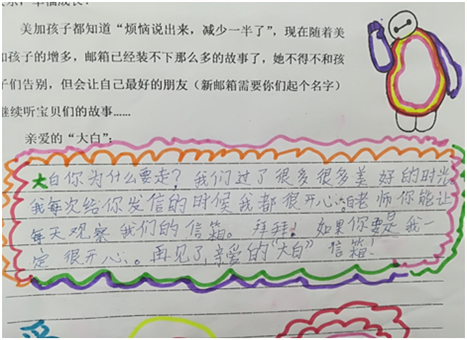 美加孩子都知道“烦恼说出来，减少一半了”，现在随着美
加孩子的增多，邮箱已经装不下那么多的故事了，她不得不和孩
子们告别，但会让自己最好的朋友（新邮箱需要你们起个名字）
继续听宝贝们的故事……
亲爱的“大白”：
大白你为什么要走？我们过了很多很多美好的时光
我每次给你发信的时候我都很开心。老师你能让
每天观察我们的信箱。拜拜！如果你要是我一
定很开心。再见了，亲爱的“大白”信箱！